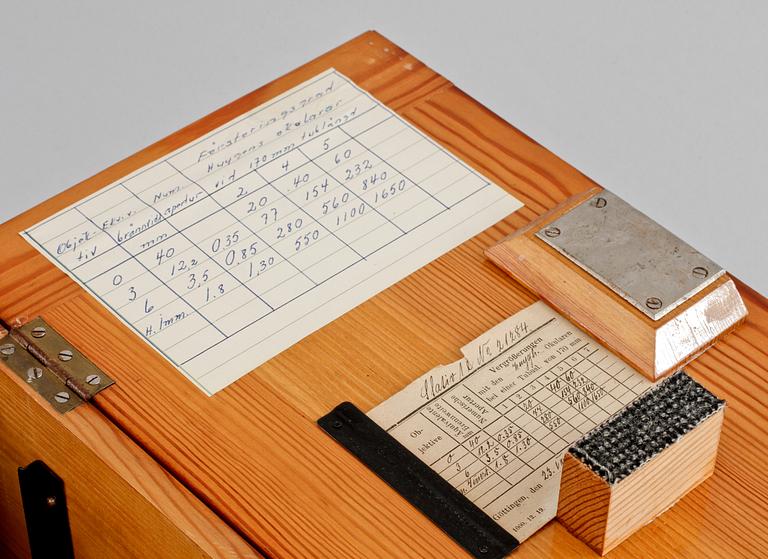 Förstoringsgrad
Huygens okularar
Objek- Ekviv. Num. vid 170 mm tublängd
tiv brännvidd apertur 2 4 5
mm
0 40 20 40 60
3 12,2 0.35 77 154 232
6 3,5 0.85 280 560 840
H. imm. 1.8 1,30 550 1100 1650
Stativ No 21284
Vergrößerungen
mit den Huygh. Okularen
bei einer Tubusl. von 170 mm
Ob-
jektive
Äquivalente
Brennweite
mm
Numerische
Apertur
0 40
3 12.2 0.35
6 3.5 0.85
1.8 1.30
Göttingen, den 23.
1000. 12. 19.